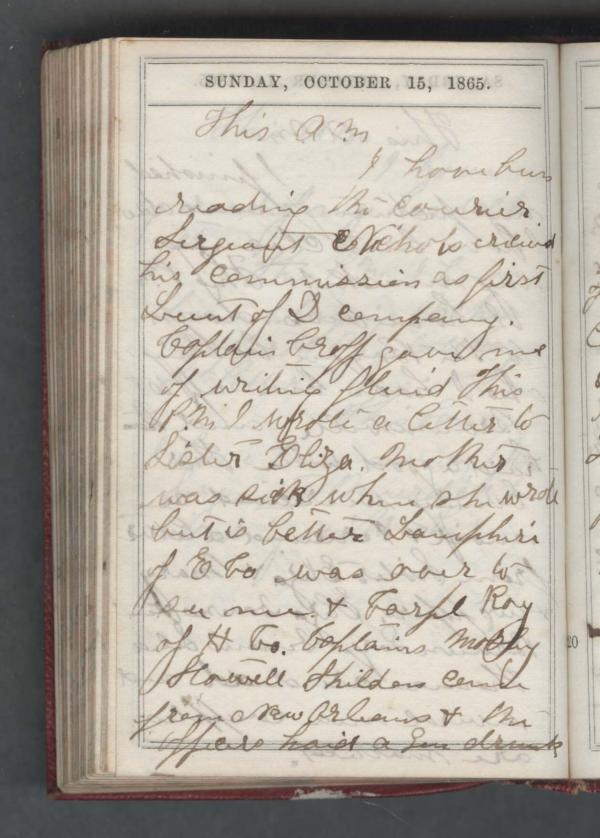 SUNDAY, OCTOBER 15, 1865.
This A M
I have been
reading the courier
Sergeant Nichols recievd
his commission as first
Lieut of D company.
Captain Croff gave me
of writing fluid This
P.M I wrote a letter to
Sister Eliza. Mother
was sick when she wrote
but is better Lamphire
of E Co was over to
see me. & Corpl Roy
of H Co. Captains
Howell come
from New Orleans & the
officers had a drunk
20